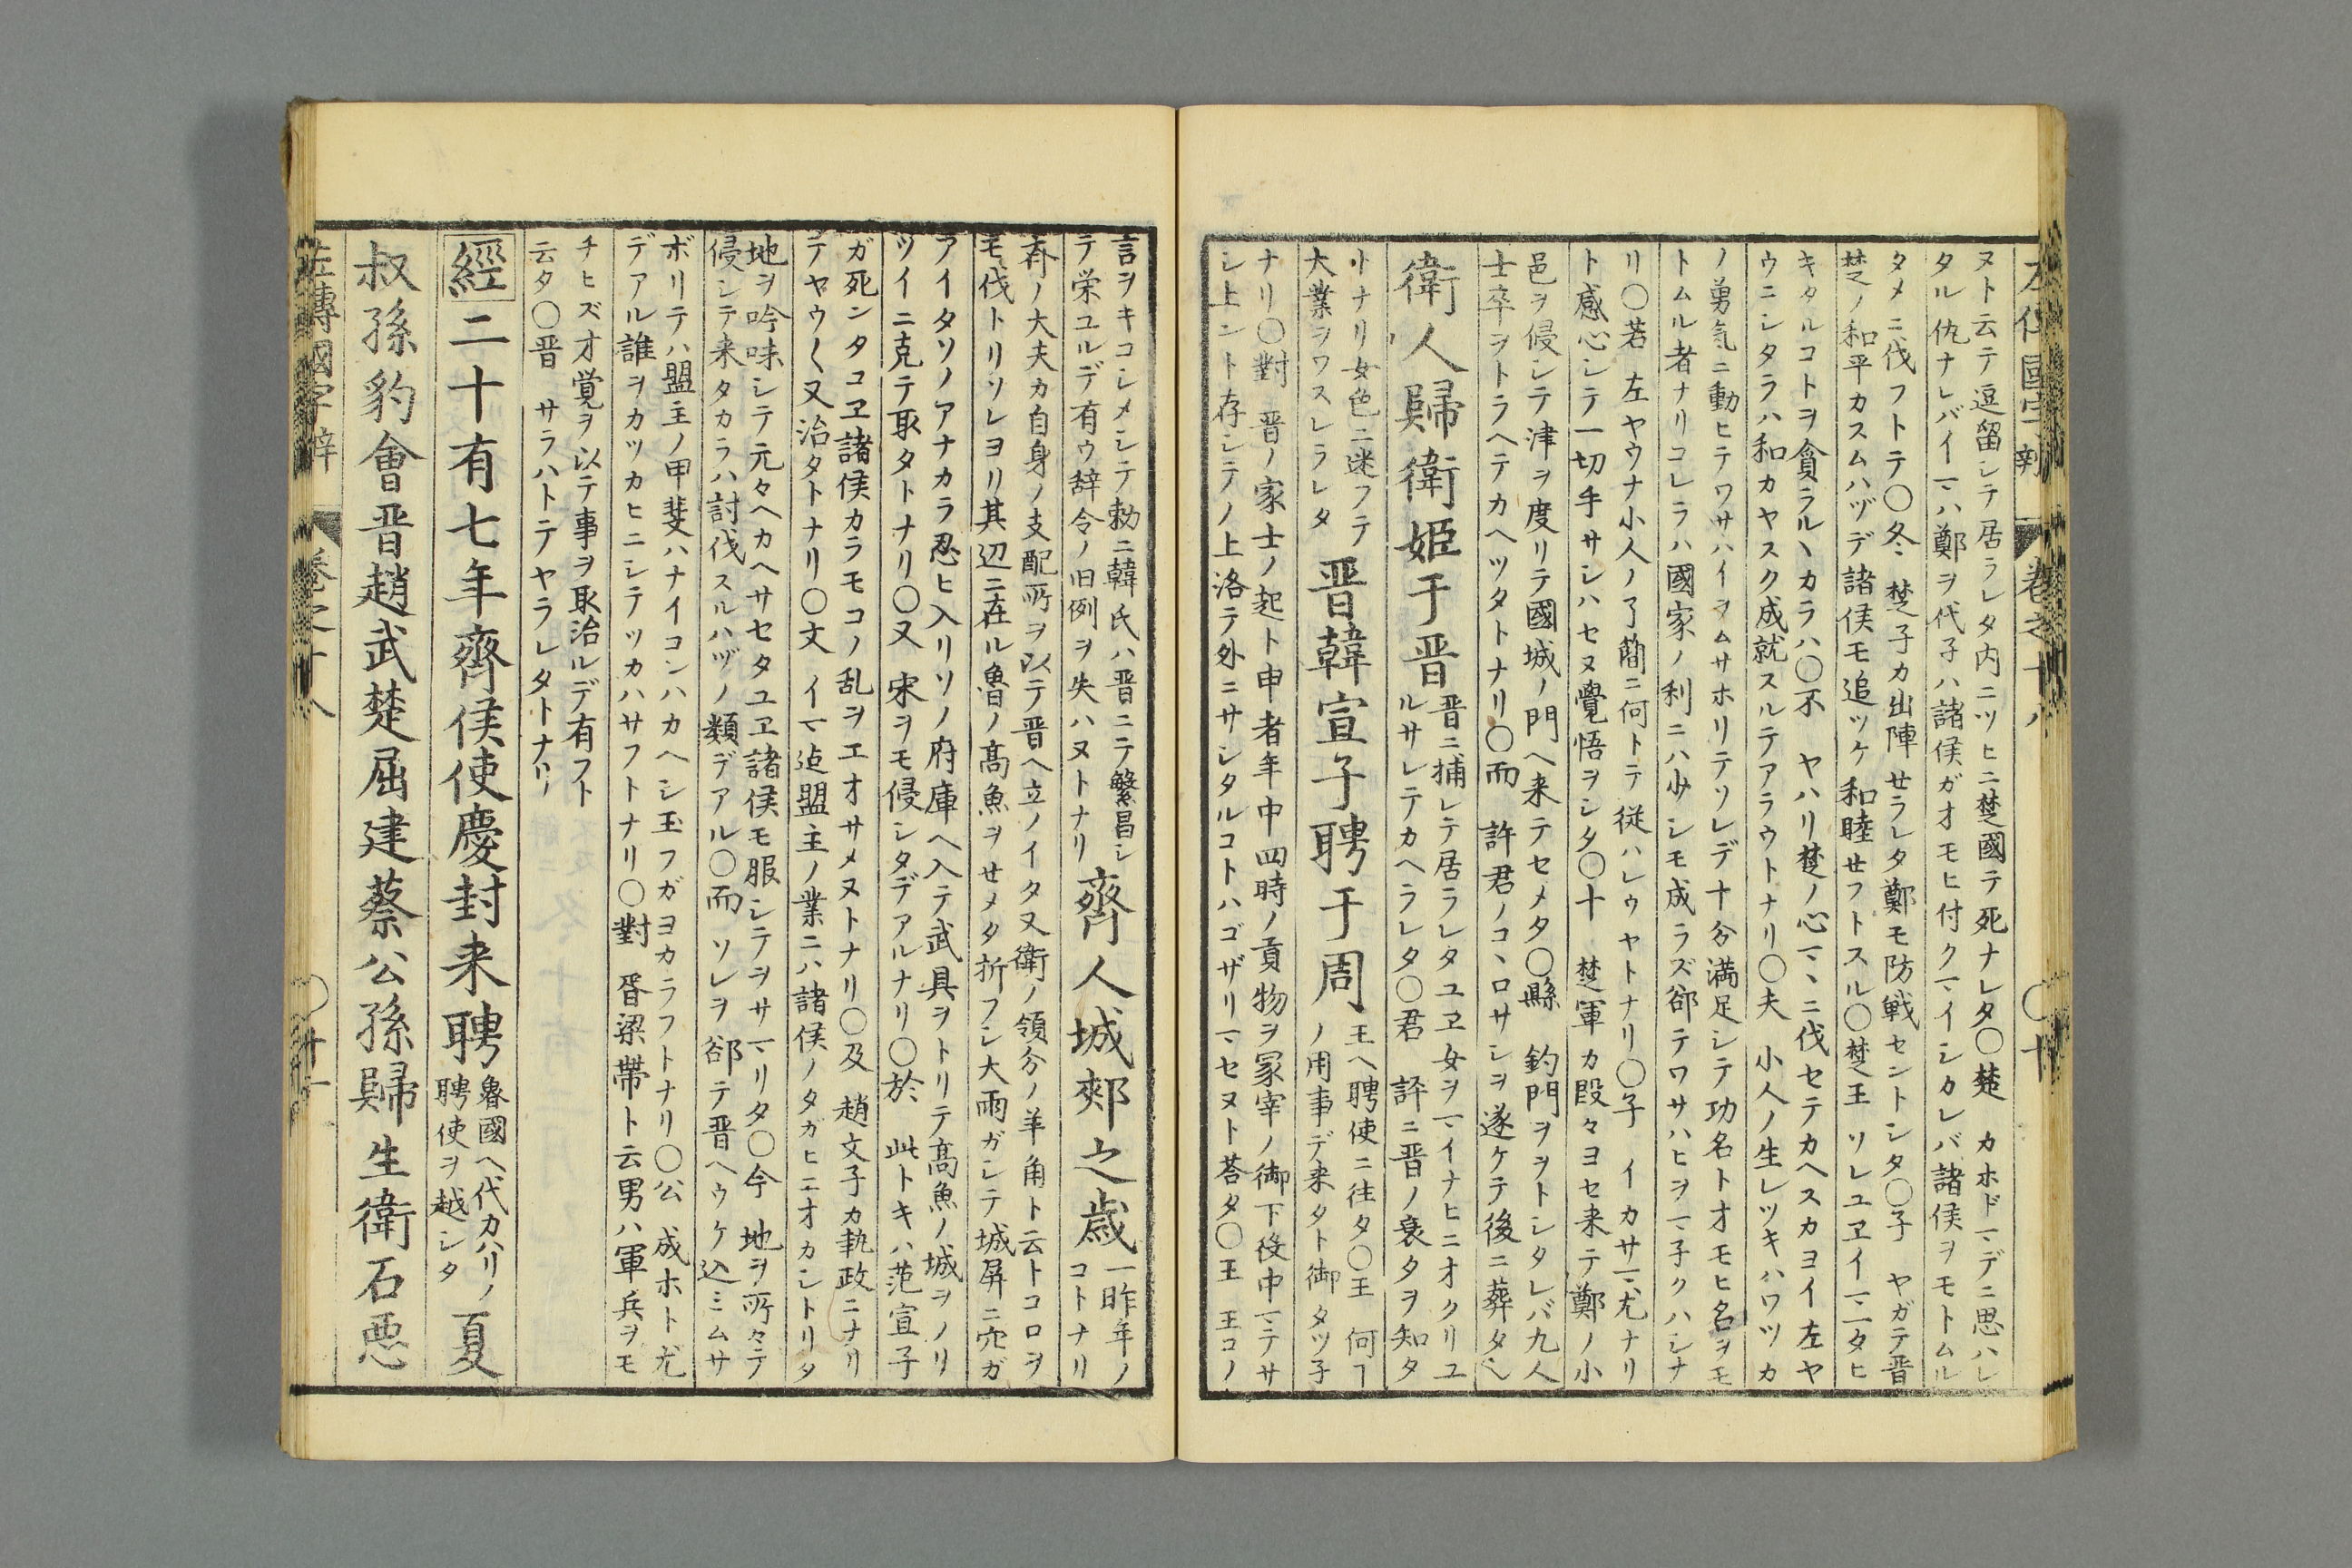 左傳國字辯 卷之十八 〇十
ヌト云テ逗留シテ居ラレタ内ニツヒニ楚國テ死ナレタ〇楚 カホドマデニ思ハレ
タル仇ナレバイマハ鄭ヲ伐子ハ諸侯ガオモヒ付クマイシカレバ諸侯ヲモトムル
タメニ伐フトテ〇冬 楚子カ出陣せラレタ鄭モ防戦セントシタ〇子 ヤガテ晋
楚ノ和平カスムハヅデ諸侯モ追ツケ和睦せフトスル〇楚王 ソレユヱイマ一タヒ
キタルコトヲ貪ラルヽカラハ〇不 ヤハリ楚ノ心マヽニ伐セテカヘスカヨイ左ヤ
ウニシタラハ和カヤスク成就スルテアラウトナリ〇夫 小人ノ生レツキハワツカ
ノ勇気ニ動ヒテワサハイヲムサホリテソレデ十分満足シテ功名トオモヒ名ヲモ
トムル者ナリコレラハ國家ノ利ニハ少シモ成ラズ郤テワサハヒヲマ子クハシナ
リ〇若 左ヤウナ小人ノ了簡ニ何トテ従ハレウヤトナリ〇子 イカサマ尤ナリ
ト感心シテ一切手サシハセヌ覺悟ヲシタ〇十 楚軍カ段々ヨセ来テ鄭ノ小
邑ヲ侵シテ津ヲ度リテ國城ノ門ヘ来テセメタ〇縣 釣門ヲヲトシタレバ九人
士卒ヲトラヘテカヘツタトナリ〇而 許君ノコヽロサシヲ遂ケテ後ニ葬タ
衛人歸衛姫于晋 晋ニ捕レテ居ラレタユヱ女ヲマイナヒニオクリユ
ルサレテカヘラレタ〇君 評ニ晋ノ衰タヲ知タ
リトナリ女色ニ迷フテ
大業ヲワスレラレタ 晋韓宣子聘于周 王ヘ聘使ニ往タ〇王 何
ノ用事デ来タト御タツ子
ナリ〇對 晋ノ家士ノ起ト申者年中四時ノ貢物ヲ冢宰ノ御下役中マテサ
シ上ント存シテノ上洛テ外ニサシタルコトハゴザリマセヌト荅タ〇王 王コノ
言ヲキコシメシテ勅ニ韓氏ハ晋ニテ繁昌シ
テ栄ユルデ有ウ辞令ノ旧例ヲ失ハヌトナリ 齊人城郟之歳 一昨年ノ
コトナリ
斉ノ大夫カ自身ノ支配所ヲ以テ晋ヘ立ノイタ又衛ノ領分ノ羊角ト云トコロヲ
モ伐トリソレヨリ其辺ニ在ル魯ノ髙魚ヲせメタ折フシ大雨ガシテ城屏ニ穴ガ
アイタソノアナカラ忍ヒ入リソノ府庫ヘ入テ武具ヲトリテ髙魚ノ城ヲノリ
ツイニ克テ取タトナリ〇又 宋ヲモ侵シタデアルナリ〇於 此トキハ范宣子
ガ死ンタコヱ諸侯カラモコノ乱ヲエオサメヌトナリ〇及 趙文子カ執政ニナリ
テヤウ〱又治タトナリ〇文 イマ迠盟主ノ業ニハ諸侯ノタカヒニオカシトリタ
地ヲ吟味シテ元々ヘカヘサセタユヱ諸侯モ服シテヲサマリタ〇今 地ヲ所々テ
侵シテ来タカラハ討伐スルハヅノ類デアル〇而 ソレヲ郤テ晋ヘウケ込ミムサ
ボリテハ盟主ノ甲斐ハナイコンハカヘシ玉フガヨカラフトナリ〇公 成ホト尤
デアル誰ヲカツカヒニシテツカハサフトナリ〇對 胥梁帯ト云男ハ軍兵ヲモ
チヒズ才覚ヲ以テ事ヲ取治ルデ有フト
云タ〇晋 サラハトテヤラレタトナリ
經二十有七年齊侯使慶封来聘 魯國ヘ代カハリノ
聘使ヲ越シタ 夏
叔孫豹會晋趙武楚屈建蔡公孫歸生衛石悪
左傳國字辯 卷之十八 〇十一